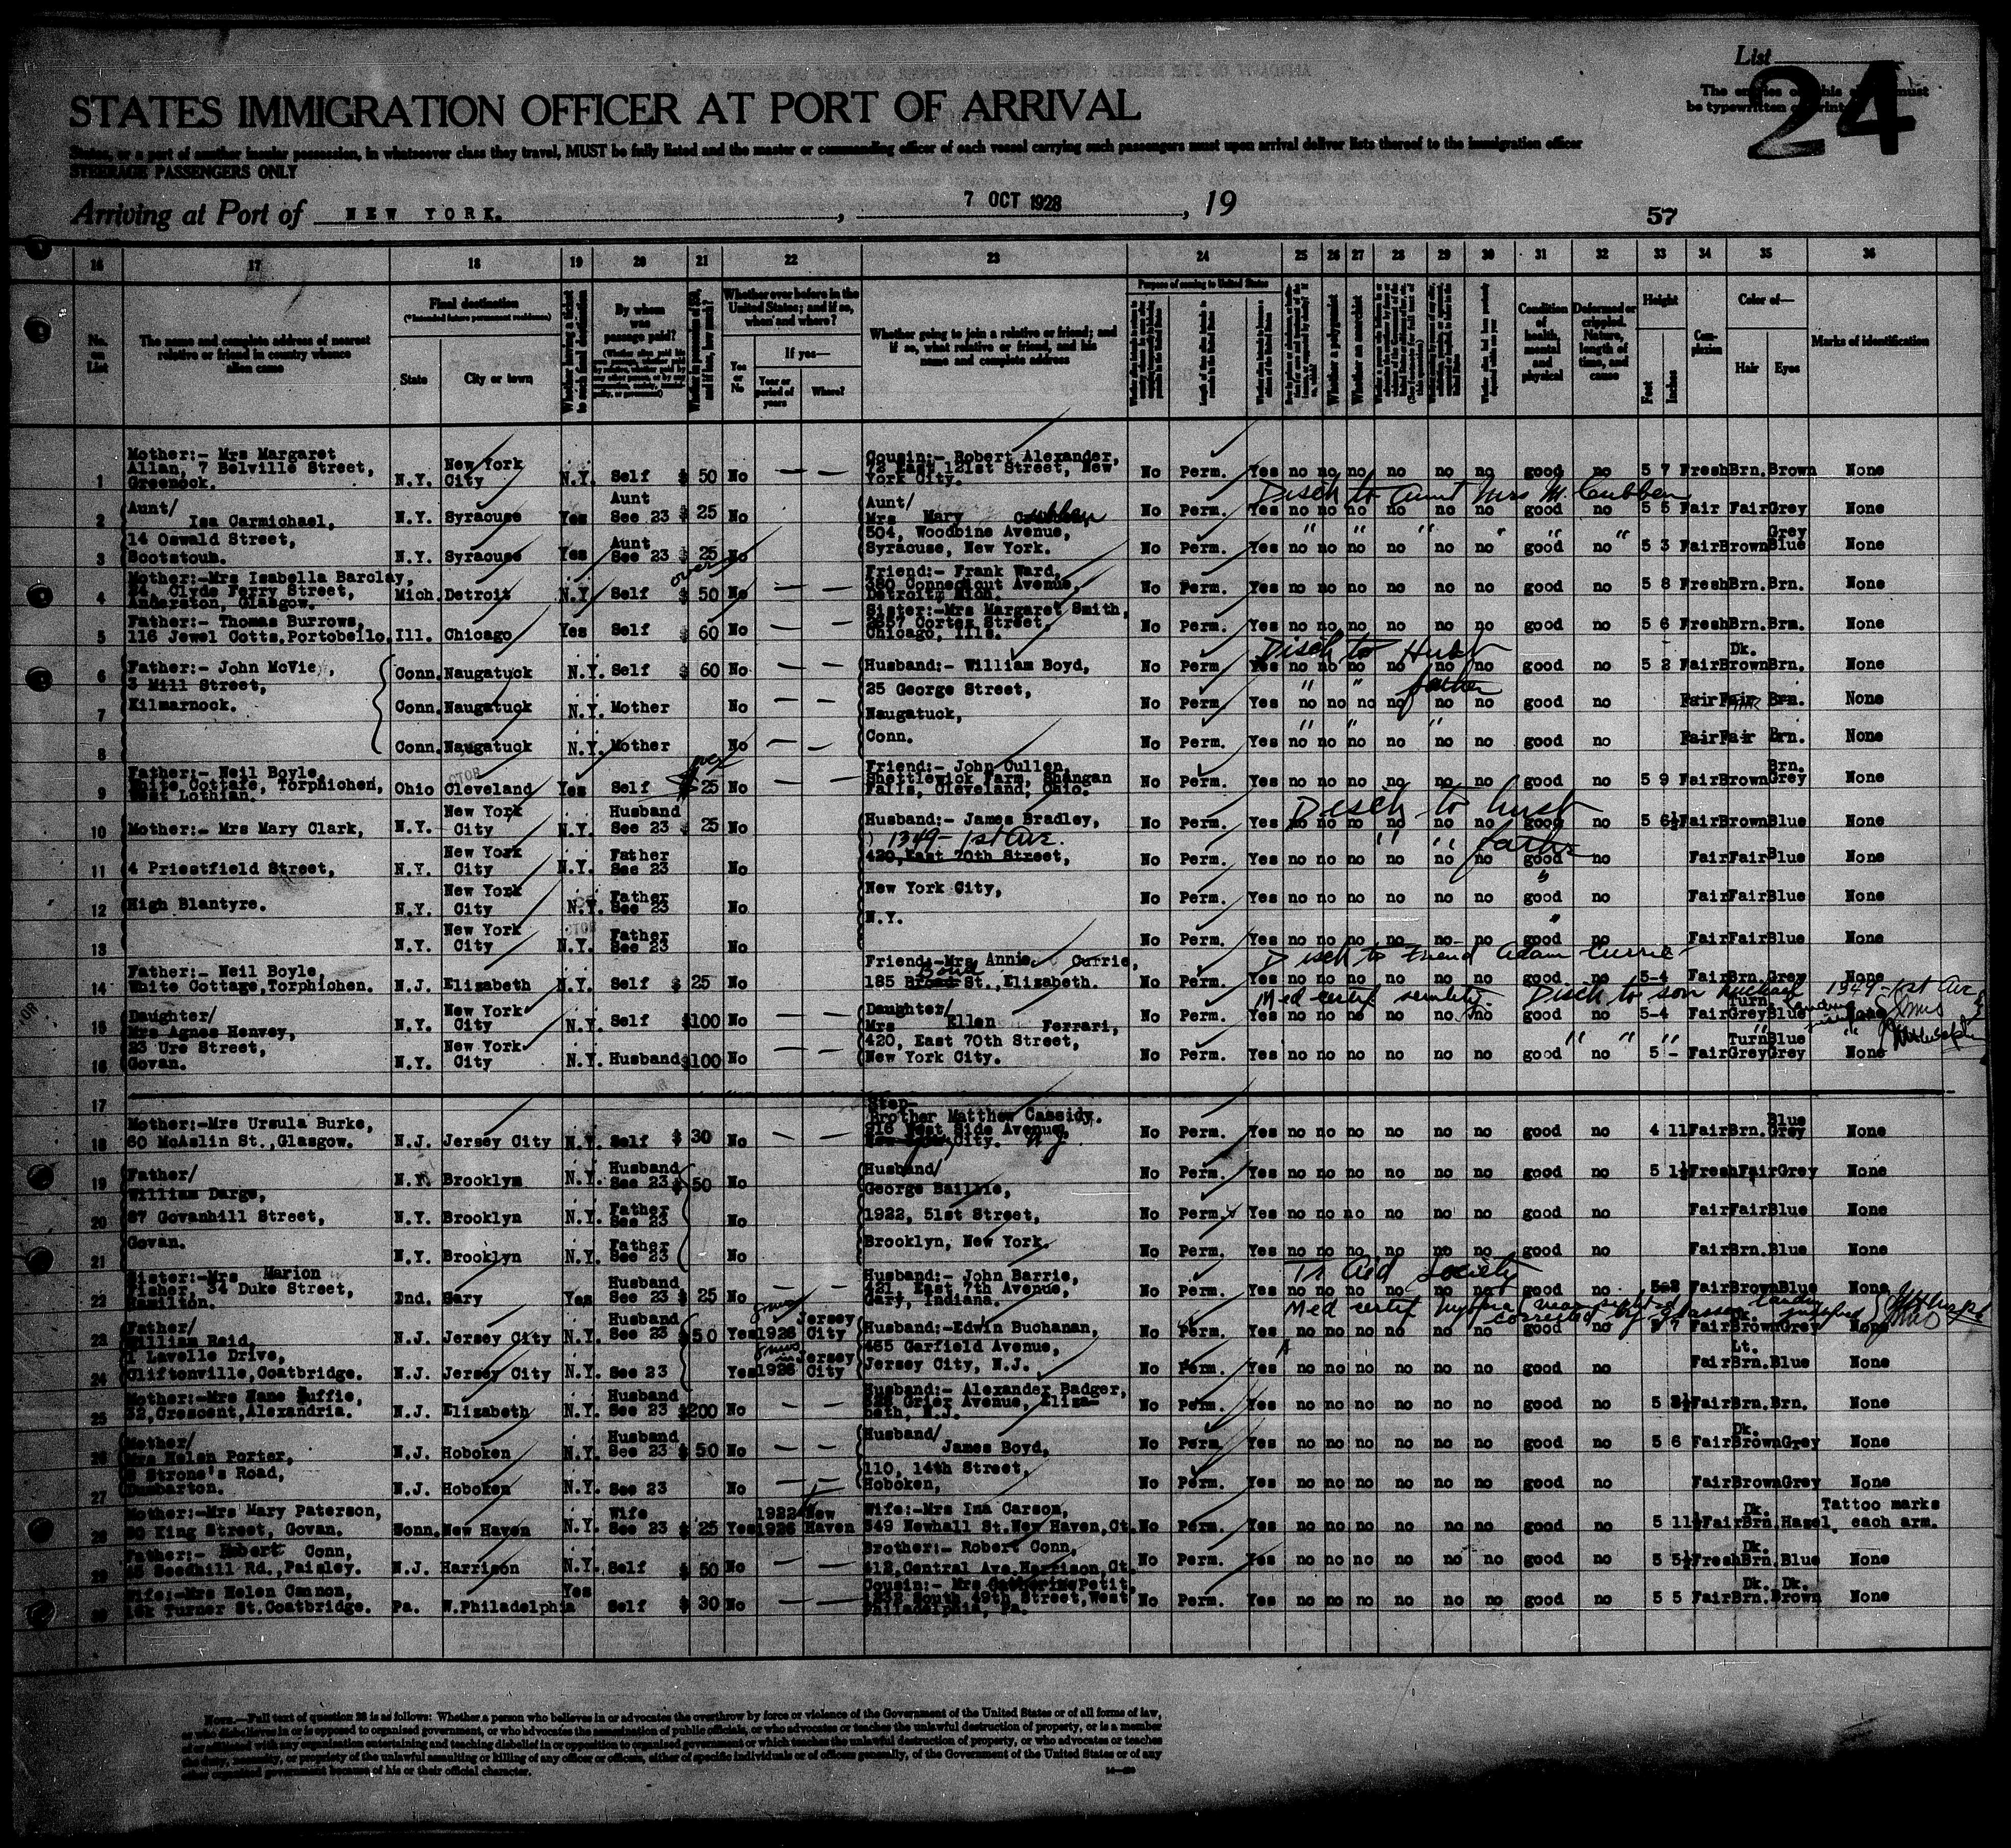 List
24
STATES IMMIGRATION OFFICER AT PORT OF ARRIVAL
The entries must be typewritten
States, or a part of another insular possession, in whatsoever class they travel, MUST be fully listed and the master or commanding officer of each vessel carrying such passengers must upon arrival deliver lists thereof to the immigration officer
STEERAGE PASSENGERS ONLY
Arriving at Port of NEW YORK. , 7 OCT 1928 , 19
57
16 17 18 19 20 21 22 23 24 25 26 27 28 29 30 31 32 33 34 35 36
No. on List
The name and complete address of nearest relative or friend in country whence alien came
Final destination
(*Intended future permanent residence)
State
City or town
Whether having a ticket to such final destination
By whom was passage paid?
Whether ever before in the United States; and if so, when and where?
Yes or No
If yes—
Year or period of years
Where?
Whether going to join a relative or friend; and if so, what relative or friend, and his name and complete address
Purpose of coming to United States
Whether a polygamist
Whether an anarchist
Condition of health, mental and physical
Deformed or crippled. Nature, length of time, and cause
Height
Feet
Inches
Complexion
Color of—
Hair
Eyes
Marks of identification
1 Mother:- Mrs Margaret Allan, 7 Belville Street, Greenock. N.Y. New York City N.Y. Self $ 50 No — — Cousin:- Robert Alexander, 72 East 121st Street, New York City. No Perm. Yes no no no no no no good no 5 7 Fresh Brn. Brown None
Disch to Aunt Mrs M. Cubben
2 Aunt/ Isa Carmichael, N.Y. Syracuse Yes Aunt See 23 $ 25 No Aunt/ Mrs Mary No Perm. Yes no no no no no no good no 5 5 Fair Fair Grey None
3 14 Oswald Street, Scotstoun. N.Y. Syracuse Yes Aunt See 23 $ 25 No 504, Woodbine Avenue, Syracuse, New York. No Perm. Yes no no no no no no good no 5 3 Fair Brown Grey Blue None
over
4 Mother:-Mrs Isabella Barclay, 24, Clyde Ferry Street, Anderston, Glasgow. Mich. Detroit N.Y. Self $ 50 No — — Friend:- Frank Ward, 380 Connecticut Avenue, Detroit, Mich. No Perm. Yes no no no no no no good no 5 8 Fresh Brn. Brn. None
5 Father:- Thomas Burrows, 116 Jewel Cotts, Portobello, Ill. Chicago Yes Self $ 60 No — — Sister:-Mrs Margaret Smith, 2657 Cortes Street, Chicago, Ills. No Perm. Yes no no no no no no good no 5 6 Fresh Brn. Brn. None
Disch to Husb
6 Father:- John McVie, Conn. Naugatuck N.Y. Self $ 60 No — — Husband:- William Boyd, No Perm. Yes no no no no no no good no 5 2 Fair Dk. Brown Brn. None
" " father
7 3 Mill Street, Kilmarnock. Conn. Naugatuck N.Y. Mother No — — 25 George Street, Naugatuck, No Perm. Yes no no no no no no good no Fair Fair Brn. None
8 Conn. Naugatuck N.Y. Mother No — — Conn. No Perm. Yes no no no no no no good no Fair Fair Brn. None
9 Father:- Neil Boyle, White Cottage, Torphichen, West Lothian. Ohio Cleveland Yes Self $ 25 No — — Friend:- John Cullen, Shettlewick Farm, Shangan Falls, Cleveland, Ohio. No Perm. Yes no no no no no no good no 5 9 Fair Brown Brn. Grey None
Disch to husb
10 Mother:- Mrs Mary Clark, N.Y. New York City N.Y. Husband See 23 $ 25 No — — Husband:- James Bradley, No Perm. Yes no no no no no no good no 5 6½ Fair Brown Blue None
1349 - 1st Ave.
" " father
11 4 Priestfield Street, N.Y. New York City N.Y. Father See 23 No 420, East 70th Street, No Perm. Yes no no no no no no good no Fair Fair Blue None
12 High Blantyre. N.Y. New York City N.Y. Father See 23 No New York City, No Perm. Yes no no no no no no good no Fair Fair Blue None
13 N.Y. New York City N.Y. Father See 23 No N.Y. No Perm. Yes no no no no no no good no Fair Fair Blue None
Disch to Friend Adam Currie
14 Father:- Neil Boyle, White Cottage, Torphichen. N.J. Elizabeth N.Y. Self $ 25 No Friend:-Mrs Annie Currie, 185 Broad Bond St., Elizabeth. No Perm. Yes no no no no no no good no 5-4 Fair Brn. Grey None
Med certif senility. Disch to son Michael 1349 - 1st Ave
15 Daughter/ Mrs Agnes Henvey, N.Y. New York City N.Y. Self $100 No — — Daughter/ Mrs Ellen Ferrari, No Perm. Yes no no no no no no good no 5-4 Fair Turn Grey Blue
16 23 Ure Street, Govan. N.Y. New York City N.Y. Husband $100 No — — 420, East 70th Street, New York City. No Perm. Yes no no no no no no good no 5 - Fair Turn Grey Blue Grey None
17
18 Mother:-Mrs Ursula Burke, 60 McAslin St., Glasgow. N.J. Jersey City N.Y. Self $ 30 No — — Step-Brother Matthew Cassidy. 916 West Side Avenue, City. N.J. No Perm. Yes no no no no no no good no 4 11 Fair Brn. Blue Grey None
19 Father/ William Darge, N.Y. Brooklyn N.Y. Husband See 23 $ 50 No Husband/ George Baillie, No Perm. Yes no no no no no no good no 5 1½ Fresh Fair Grey None
20 87 Govanhill Street, N.Y. Brooklyn N.Y. Father See 23 No 1922, 51st Street, No Perm. Yes no no no no no no good no Fair Fair Blue None
21 Govan. N.Y. Brooklyn N.Y. Father See 23 No Brooklyn, New York. No Perm. Yes no no no no no no good no Fair Brn. Blue None
Tr Aid Society
22 Sister:-Mrs Marion Fisher, 34 Duke Street, Hamilton. Ind. Gary Yes Husband See 23 $ 25 No — — Husband:- John Barrie, 421, East 7th Avenue, Gary, Indiana. No Perm. Yes no no no no no no good no 5-2 Fair Brown Blue None
Med certif corrected by glasses
23 Father/ William Reid, N.J. Jersey City N.Y. Husband See 23 $ 50 Yes 1926 Jersey City Husband:-Edwin Buchanan, No Perm. Yes no no no no no no good no 5 7 Fair Brown Grey None
24 1 Lavelle Drive, Cliftonville, Coatbridge. N.J. Jersey City N.Y. See 23 Yes 1926 Jersey City 465 Garfield Avenue, Jersey City, N.J. No Perm. Yes no no no no no no good no Fair Lt. Brn. Blue None
25 Mother:-Mrs Duffie, 32, Crescent, Alexandria. N.J. Elizabeth N.Y. Husband See 23 $200 No — — Husband:- Alexander Badger, Grier Avenue, Elizabeth, N.J. No Perm. Yes no no no no no no good no 5 Fair Brn. Brn. None
26 Mother/ Mrs Helen Porter, N.J. Hoboken N.Y. Husband See 23 $ 50 No — — Husband/ James Boyd, No Perm. Yes no no no no no no good no 5 6 Fair Dk. Brown Grey None
27 Strone's Road, Dumbarton. N.J. Hoboken N.Y. See 23 No — — 110, 14th Street, Hoboken, No Perm. Yes no no no no no no good no Fair Brown Grey None
28 Mother:-Mrs Mary Paterson, King Street, Govan. Conn. New Haven N.Y. Wife See 23 $ 25 Yes 1922 1926 New Haven Wife:-Mrs Ina Carson, 549 Newhall St. New Haven, Ct. No Perm. Yes no no no no no no good no 5 11½ Fair Dk. Brn. Hazel Tattoo marks each arm.
29 Father:- Robert Conn, Seedhill Rd., Paisley. N.J. Harrison N.Y. Self $ 50 No — — Brother:- Robert Conn, 412, Central Ave. Harrison, Ct. No Perm. Yes no no no no no no good no 5 5½ Fresh Dk. Brn. Blue None
30 Wife:-Mrs Helen Cannon, Turner St. Coatbridge. Pa. W.Philadelphia Yes Self $ 30 No — — Cousin:- Mrs Catherine Petit, South 49th Street, West Philadelphia, Pa. No Perm. Yes no no no no no no good no 5 5 Fair Dk. Brn. Dk. Brown None
NOTE.—Full text of question 28 is as follows: Whether a person who believes in or advocates the overthrow by force or violence of the Government of the United States or of all forms of law,
or who disbelieves in or is opposed to organized government, or who advocates the assassination of public officials, or who advocates or teaches the unlawful destruction of property, or is a member
of or affiliated with any organization entertaining and teaching disbelief in or opposition to organized government or which teaches the unlawful destruction of property, or who advocates or teaches
the duty, necessity, or propriety of the unlawful assaulting or killing of any officer or officers, either of specific individuals or of officers generally, of the Government of the United States or of any
other organized government because of his or their official character.